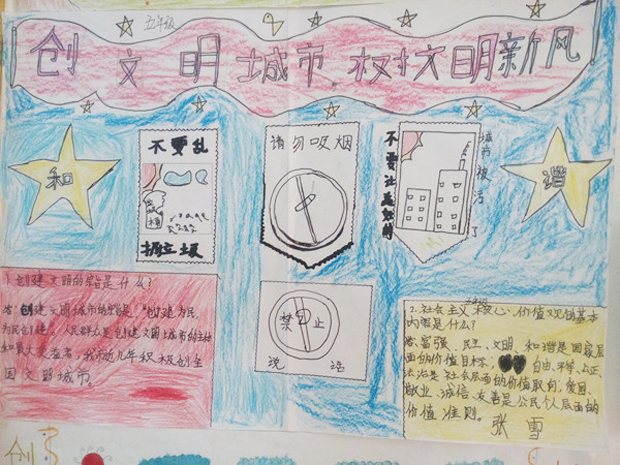 五年级
创文明城市 树文明新风
和
不要乱
扔立圾
请勿吸烟
不要让
城市被污
了
谐
1.创建文明的宗旨是什么?
答:创建文明城市的宗旨是,"创建为民,
为民创建,人民群众是创建文明城市的主体
和最大受益者,我市近几年积极创全
国文明城市。
禁止
说话
2.社会主义核心价值观的基本
内容是什么?
答:富强、民主、文明、和谐是国家层
面的价值目标,自由、平等、公正、
法治是社会层面的价值取向,爱国、
敬业、诚信、友善是公民个人层面的
价值准则。
张雪
创